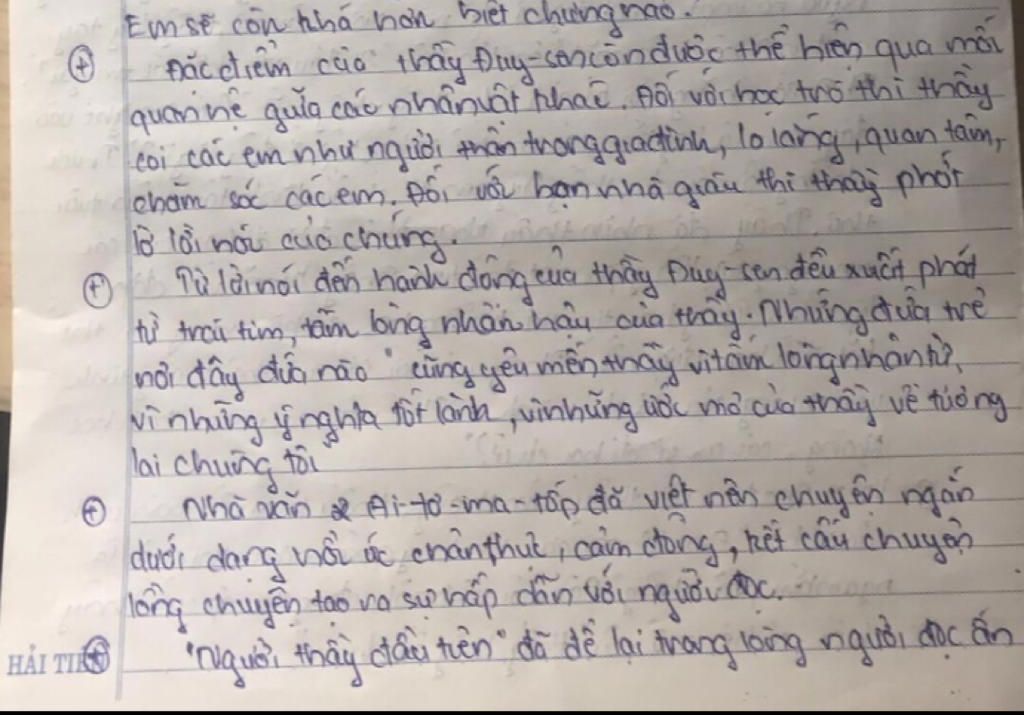 Em sẽ còn khá hơn biết chừng nào.
⊕ Đặc điểm của thầy Đuy-sen còn được thể hiện qua mối
quan hệ giữa các nhân vật khác. Đối với học trò thì thầy
coi các em như người thân trong gia đình, lo lắng, quan tâm,
chăm sóc các em. Đối với bọn nhà giàu thì thầy phớt
lờ lời nói của chúng.
⊕ Từ lời nói đến hành động của thầy Đuy-sen đều xuất phát
từ trái tim, tấm lòng nhân hậu của thầy. Những đứa trẻ
nơi đây đứa nào "cũng yêu mến thầy vì tấm lòng nhân từ,
vì những ý nghĩa tốt lành, vì những ước mơ của thầy về tương
lai chúng tôi"
⊕ Nhà văn Ai-tơ-ma-tốp đã viết nên chuyện ngắn
dưới dạng hồi ức chân thực, cảm động, kết cấu chuyện
lồng chuyện tạo ra sự hấp dẫn với người đọc.
⊕ "Người thầy đầu tiên" đã để lại trong lòng người đọc ấn
HẢI TIẾ